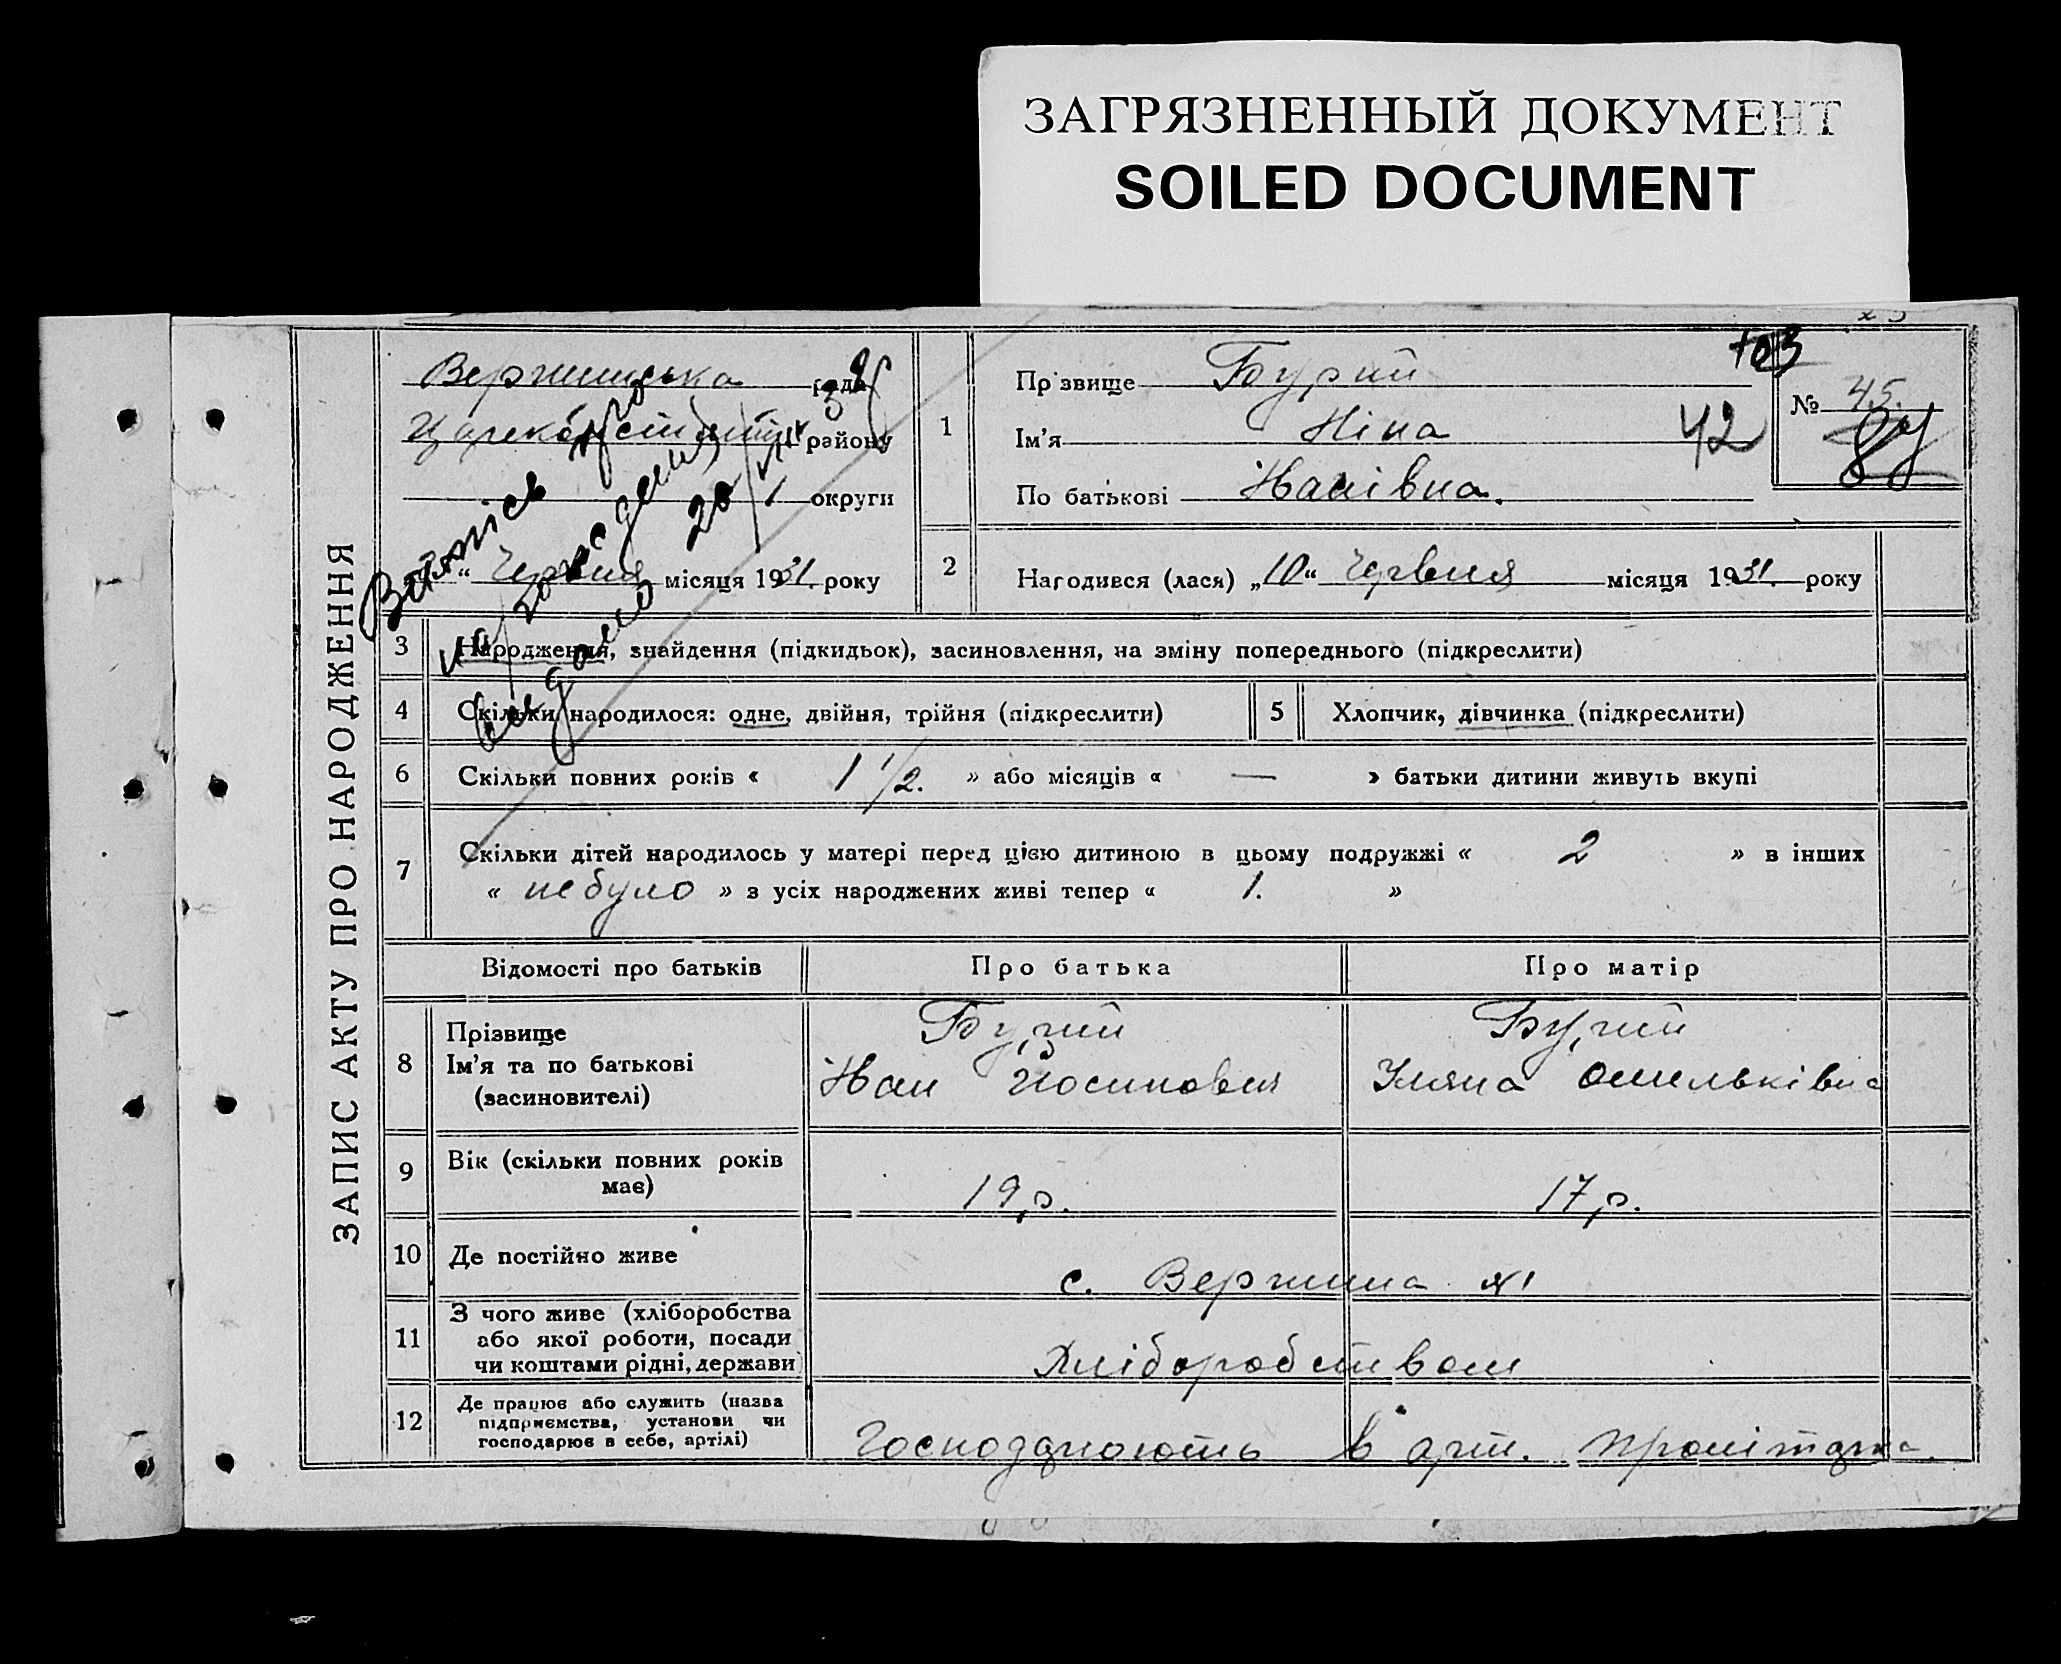 ЗАГРЯЗНЕННЫЙ ДОКУМЕНТ
SOILED DOCUMENT
ЗАПИС АКТУ ПРО НАРОДЖЕННЯ
рада
району
округи
“ Червня місяця 1931 року
103
1 Прізвище Бурий
Ім’я Ніна 42
По батькові Іванівна.
№ 45.
87
2 Народився (лася) „10“ Червня місяця 1931. року
3 Народження, знайдення (підкидьок), засиновлення, на зміну попереднього (підкреслити)
4 Скільки народилося: одне, двійня, трійня (підкреслити) 5 Хлопчик, дівчинка (підкреслити)
6 Скільки повних років « 1 1/2. » або місяців « — » батьки дитини живуть вкупі
7 Скільки дітей народилось у матері перед цією дитиною в цьому подружжі « 2 » в інших
« небуло » з усіх народжених живі тепер « 1. »
Відомості про батьків Про батька Про матір
8 Прізвище Бурий Бурий
Ім’я та по батькові Іван Йосипович Уляна
(засновителі)
9 Вік (скільки повних років має) 19 р. 17 р.
10 Де постійно живе с. Вершина
11 З чого живе (хліборобства або якої роботи, посади чи коштами рідні, держави) Хліборобством
12 Де працює або служить (назва підприємства, установи чи господарює в себе, артілі) Господарюють в арт.